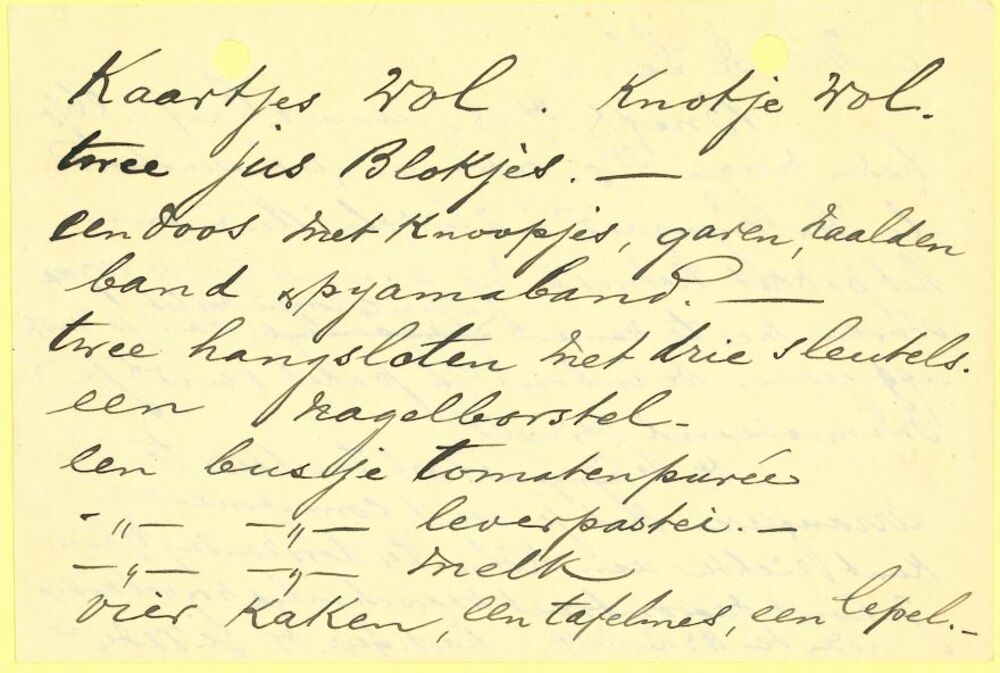 Kaartjes Wol. Knotje Wol.
twee jus Blokjes. —
een doos met Knoopjes, garen, naalden
band & pyamaband. —
twee hangsloten met drie sleutels.
een nagelborstel.
een busje tomatenpurée
-„- -„- leverpastei. -
-„- -„- melk
vier Kaken, een tafelmes, een lepel. -